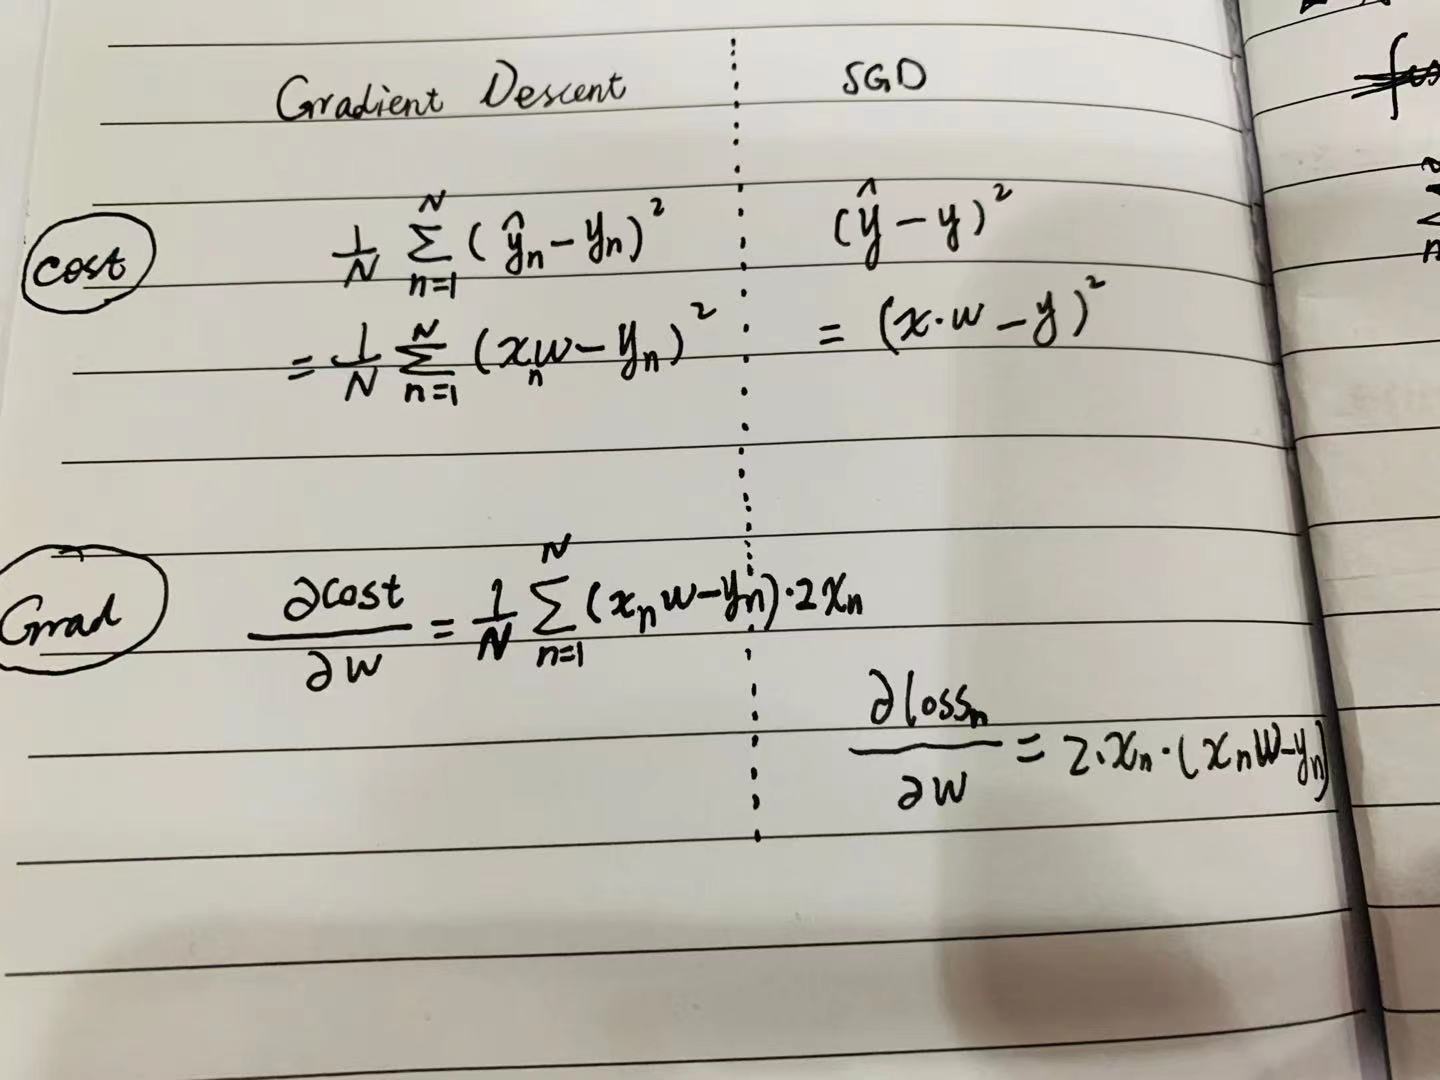 Gradient Descent SGD
cost 1/N Σ_{n=1}^{N} (ŷ_n - y_n)² (ŷ - y)²
= 1/N Σ_{n=1}^{N} (x_n w - y_n)² = (x·w - y)²
Grad ∂cost/∂w = 1/N Σ_{n=1}^{N} (x_n w - y_n)·2x_n
∂loss_n/∂w = 2·x_n·(x_n w - y_n)